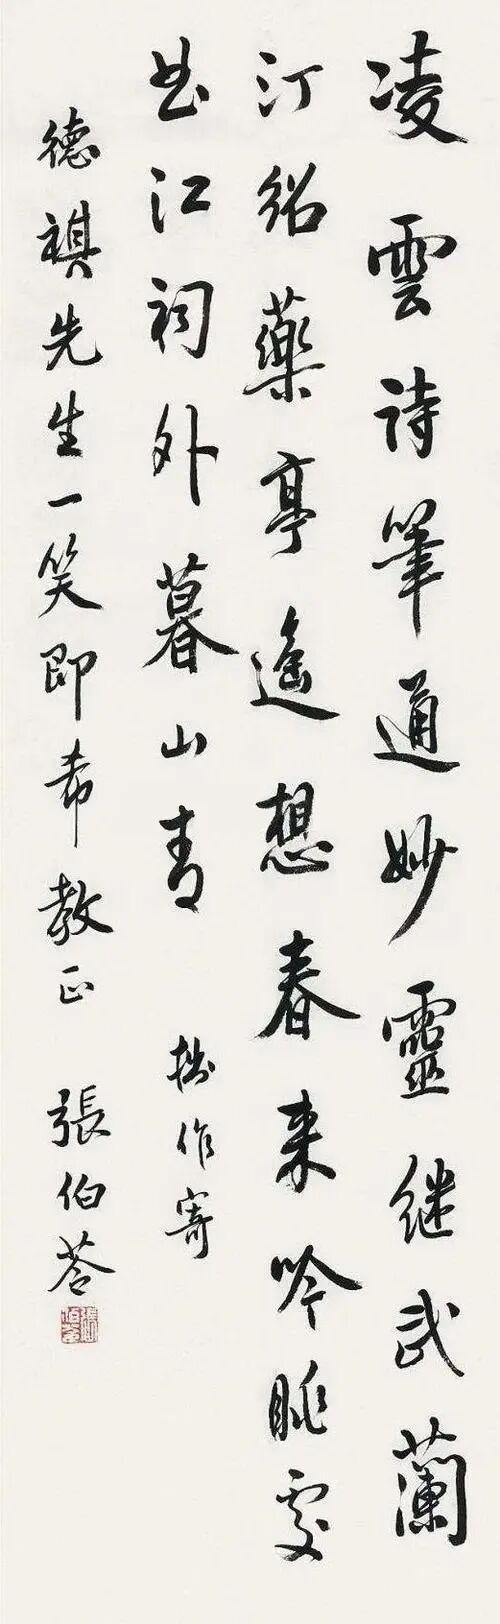 凌雲詩筆通妙靈継武蘭
汀紹藥亭遙想春来吟眺處
曲江祠外暮山青 拙作寄
德祺先生一笑即希教正 張伯苓